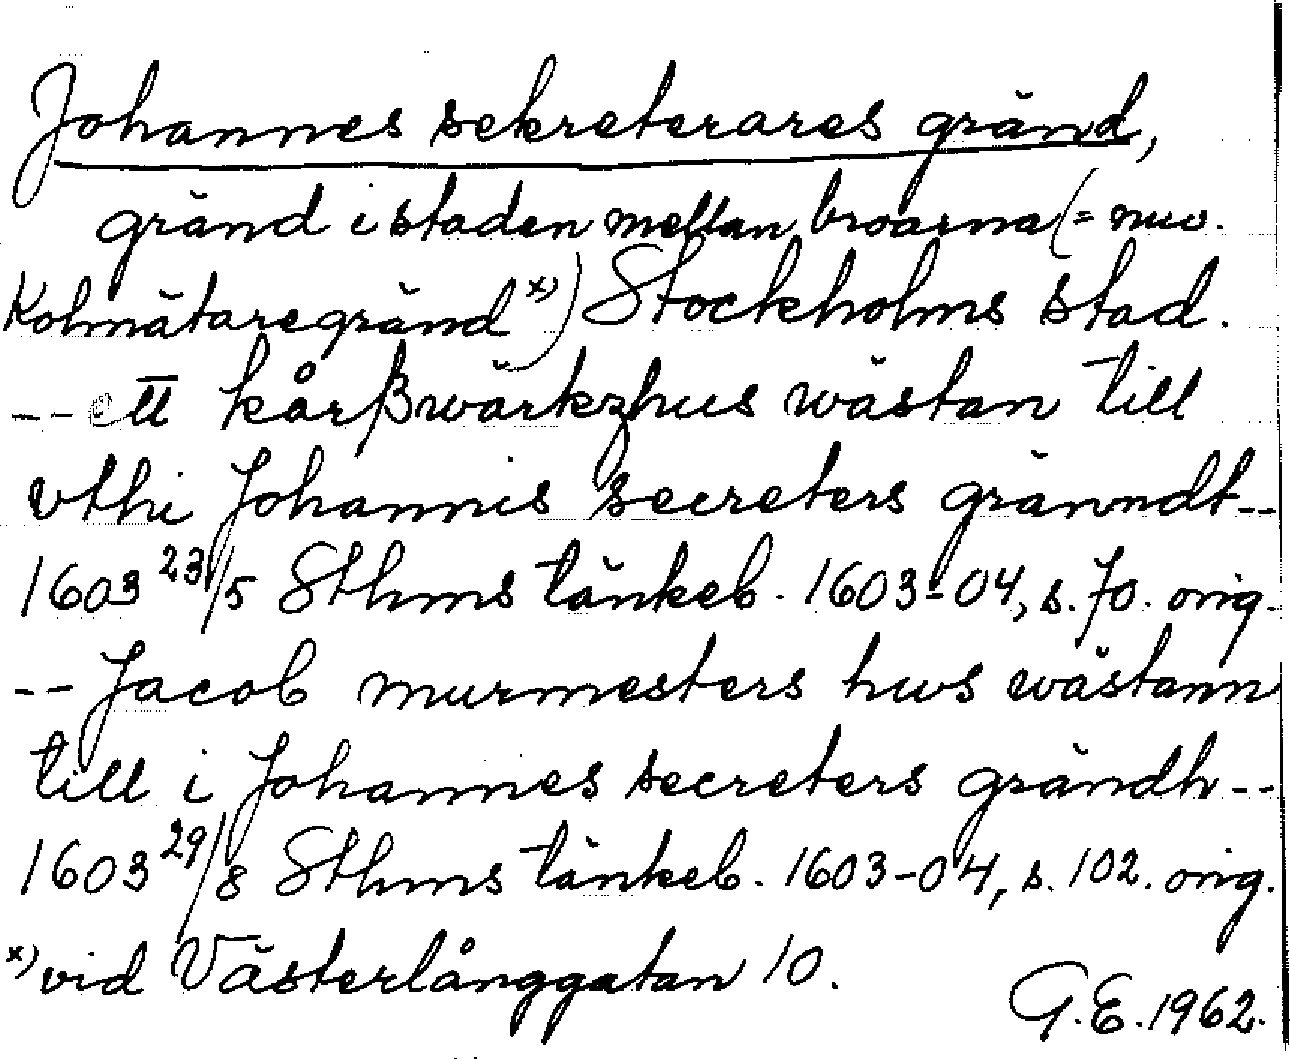 Johannes sekreterares gränd,
gränd i staden mellan broarna (= nuv.
Kolmätaregränd x)) Stockholms stad.
-- ett kårßwärkzhus wästan till
vthi Johannis secreters gränndt --
1603 23/5 Sthms tänkeb. 1603-04, s. 70. orig.
-- Jacob murmesters hws wästann
till i Johannes secreters grändh --
1603 29/8 Sthms tänkeb. 1603-04, s. 102. orig.
x) vid Västerlånggatan 10.
G.E. 1962.